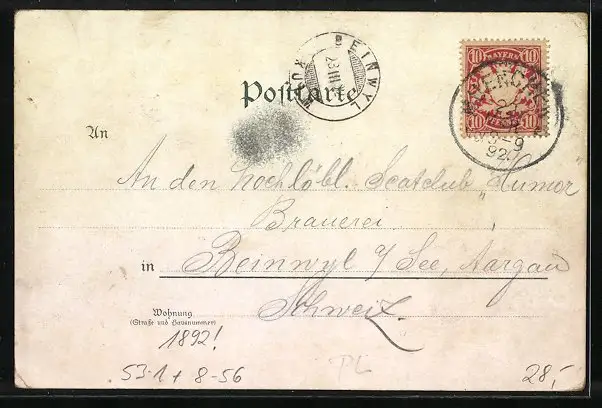 10 BAYERN 10
10 PFENNIG 10
MUENCHEN
8-9
92.
BEINWYL
23 III
Postkarte
An
An den hochlöbl. Scatclub „Humor
Brauerei
in Beinwyl a/See, Aargau
Schweiz.
Wohnung
(Straße und Hausnummer)
1892!
53.1 + 8-56
PL
28,-